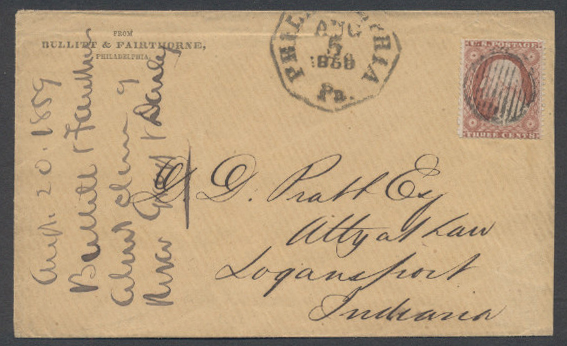 FROM
BULLITT & FAIRTHORNE,
PHILADELPHIA.
PHILADELPHIA
AUG
17
1859
Pa.
U.S. POSTAGE
THREE CENTS
D. D. Pratt Esq
Atty at Law
Logansport
Indiana
Aug. 20. 1859
Bullitt & Fairthorne
about claim of